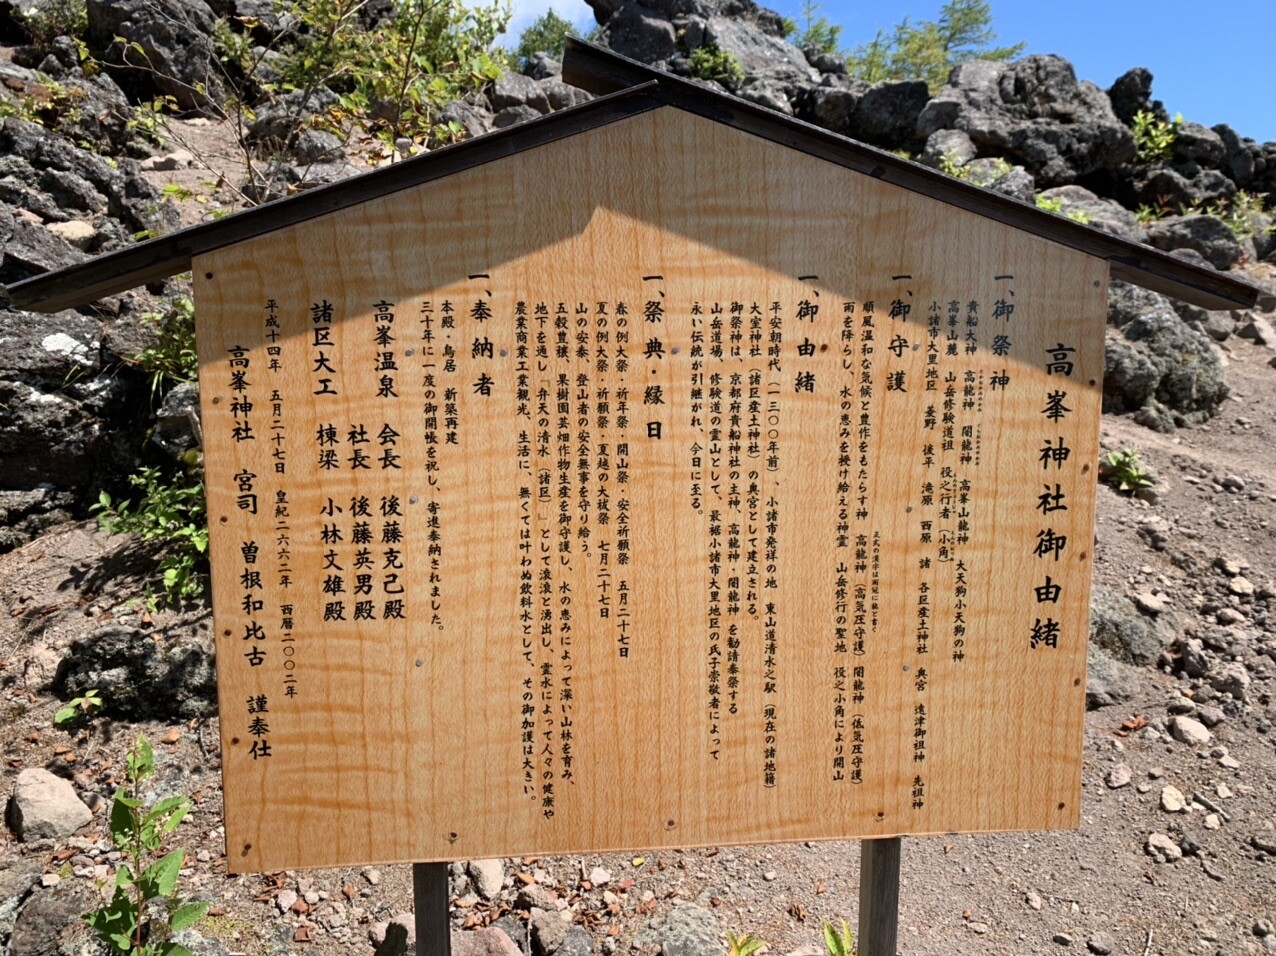 高峯神社御由緒
一、御祭神
貴船大神 高龍神 闇龍神 高峯山龍神 大天狗小天狗の神
高峯山麓 山岳修験道祖 役之行者(小角)
小諸市大里地区 菱野 後平 滝原 西原 諸 各区産土神社 奥宮 遠津御祖神 先祖神
一、御守護
順風温和な気候と豊作をもたらす神 高龍神(高気圧守護)闇龍神(低気圧守護)
正式の漢字は雨冠に龍と書く
雨を降らし、水の恵みを授け給える神霊 山岳修行の聖地 役之小角により開山
一、御由緒
平安朝時代(一二〇〇年前)、小諸市発祥の地 東山道清水之駅(現在の諸地籍)
大室神社(諸区産土神社)の奥宮として建立される。
御祭神は、京都府貴船神社の主神、高龍神・闇龍神を勧請奉祭する
山岳道場、修験道の霊山として、最裾小諸市大里地区の氏子崇敬者によって
永い伝統が引継がれ、今日に至る。
一、祭典・縁日
春の例大祭・祈年祭・開山祭・安全祈願祭 五月二十七日
夏の例大祭・祈願祭・夏越の大祓祭 七月二十七日
山の安泰、登山者の安全無事を守り給う。
五穀豊穣、果樹園芸畑作物生産を御守護し、水の恵みによって深い山林を育み、
地下を通し「弁天の清水(諸区)」として滾滾と湧出し、霊水によって人々の健康や
農業商業工業観光、生活に、無くては叶わぬ飲料水として、その御加護は大きい。
一、奉納者
本殿・鳥居 新築再建
三十年に一度の御開帳を祝し、寄進奉納されました。
高峯温泉 会長 後藤克己殿
社長 後藤英男殿
諸区大工 棟梁 小林文雄殿
平成十四年 五月二十七日 皇紀二六六二年 西暦二〇〇二年
高峯神社 宮司 曽根和比古 謹奉仕